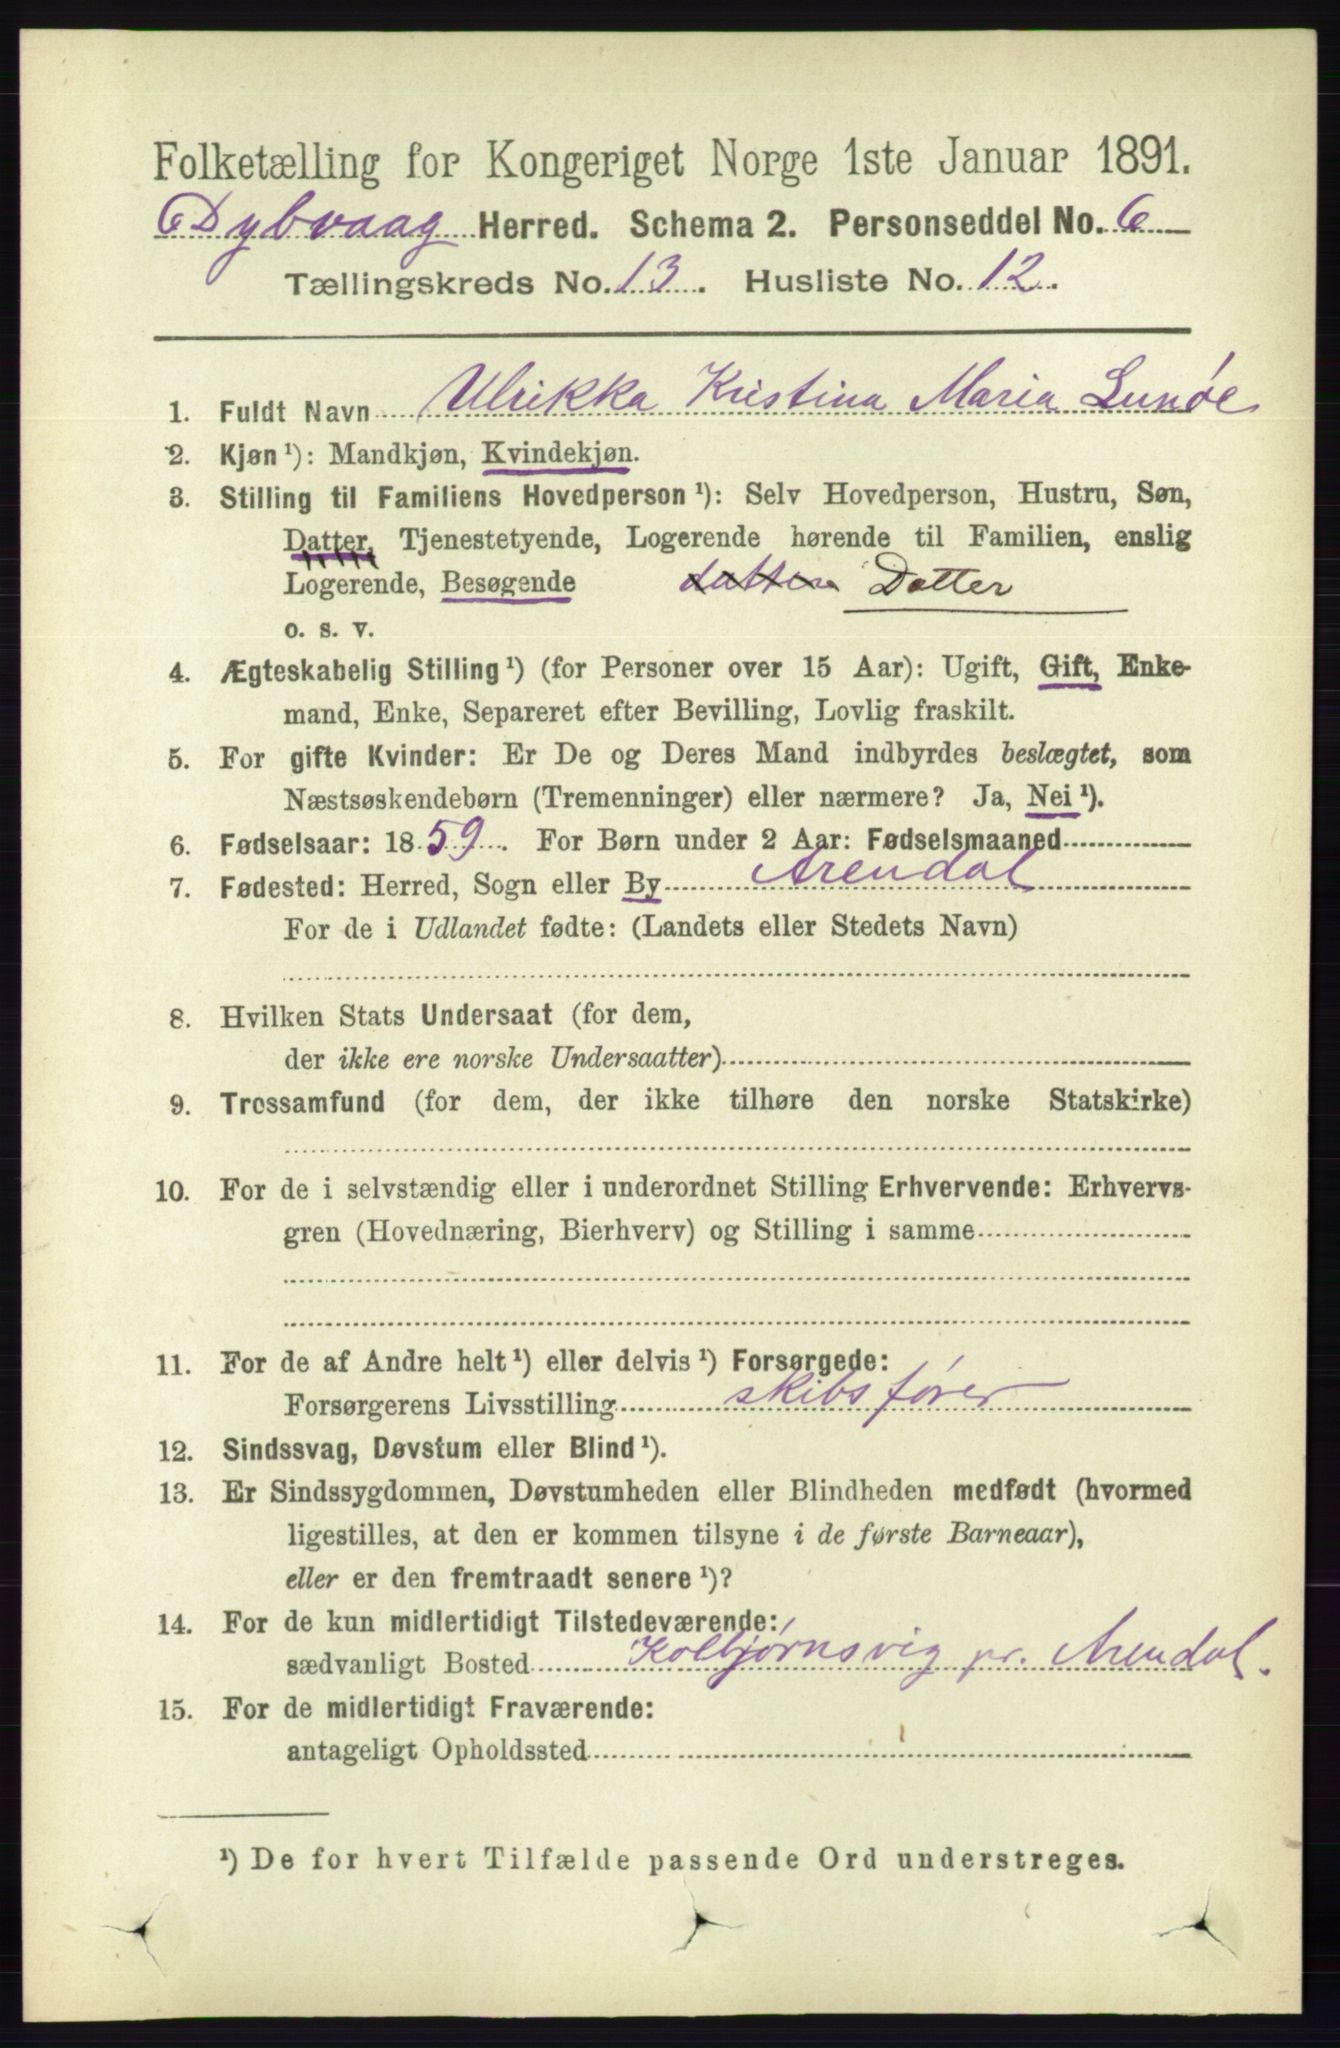 Folketælling for Kongeriget Norge 1ste Januar 1891.
Dybvaag Herred. Schema 2. Personseddel No. 6
Tællingskreds No. 13. Husliste No. 12.
1. Fuldt Navn Ulrikka Kristina Maria Lunøe
2. Kjøn¹): Mandkjøn, Kvindekjøn.
3. Stilling til Familiens Hovedperson¹): Selv Hovedperson, Hustru, Søn,
Datter, Tjenestetyende, Logerende hørende til Familien, enslig
Logerende, Besøgende datter Datter
o. s. v.
4. Ægteskabelig Stilling¹) (for Personer over 15 Aar): Ugift, Gift, Enke-
mand, Enke, Separeret efter Bevilling, Lovlig fraskilt.
5. For gifte Kvinder: Er De og Deres Mand indbyrdes beslægtet, som
Næstsøskendebørn (Tremenninger) eller nærmere? Ja, Nei¹).
6. Fødselsaar: 1859. For Børn under 2 Aar: Fødselsmaaned
7. Fødested: Herred, Sogn eller By Arendal
For de i Udlandet fødte: (Landets eller Stedets Navn)
8. Hvilken Stats Undersaat (for dem,
der ikke ere norske Undersaatter)
9. Trossamfund (for dem, der ikke tilhøre den norske Statskirke)
10. For de i selvstændig eller i underordnet Stilling Erhvervende: Erhvervs-
gren (Hovednæring, Bierhverv) og Stilling i samme
11. For de af Andre helt¹) eller delvis¹) Forsørgede:
Forsørgerens Livsstilling skibsfører
12. Sindssvag, Døvstum eller Blind¹).
13. Er Sindssygdommen, Døvstumheden eller Blindheden medfødt (hvormed
ligestilles, at den er kommen tilsyne i de første Barneaar),
eller er den fremtraadt senere¹)?
14. For de kun midlertidigt Tilstedeværende:
sædvanligt Bosted Kolbjørnsvig pr. Arendal.
15. For de midlertidigt Fraværende:
antageligt Opholdssted
¹) De for hvert Tilfælde passende Ord understreges.